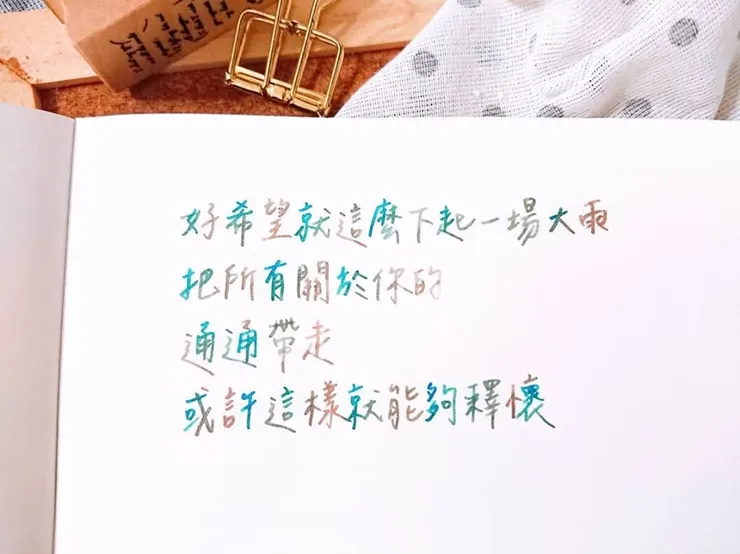 好希望就這麼下起一場大雨
把所有關於你的
通通帶走
或許這樣就能夠釋懷